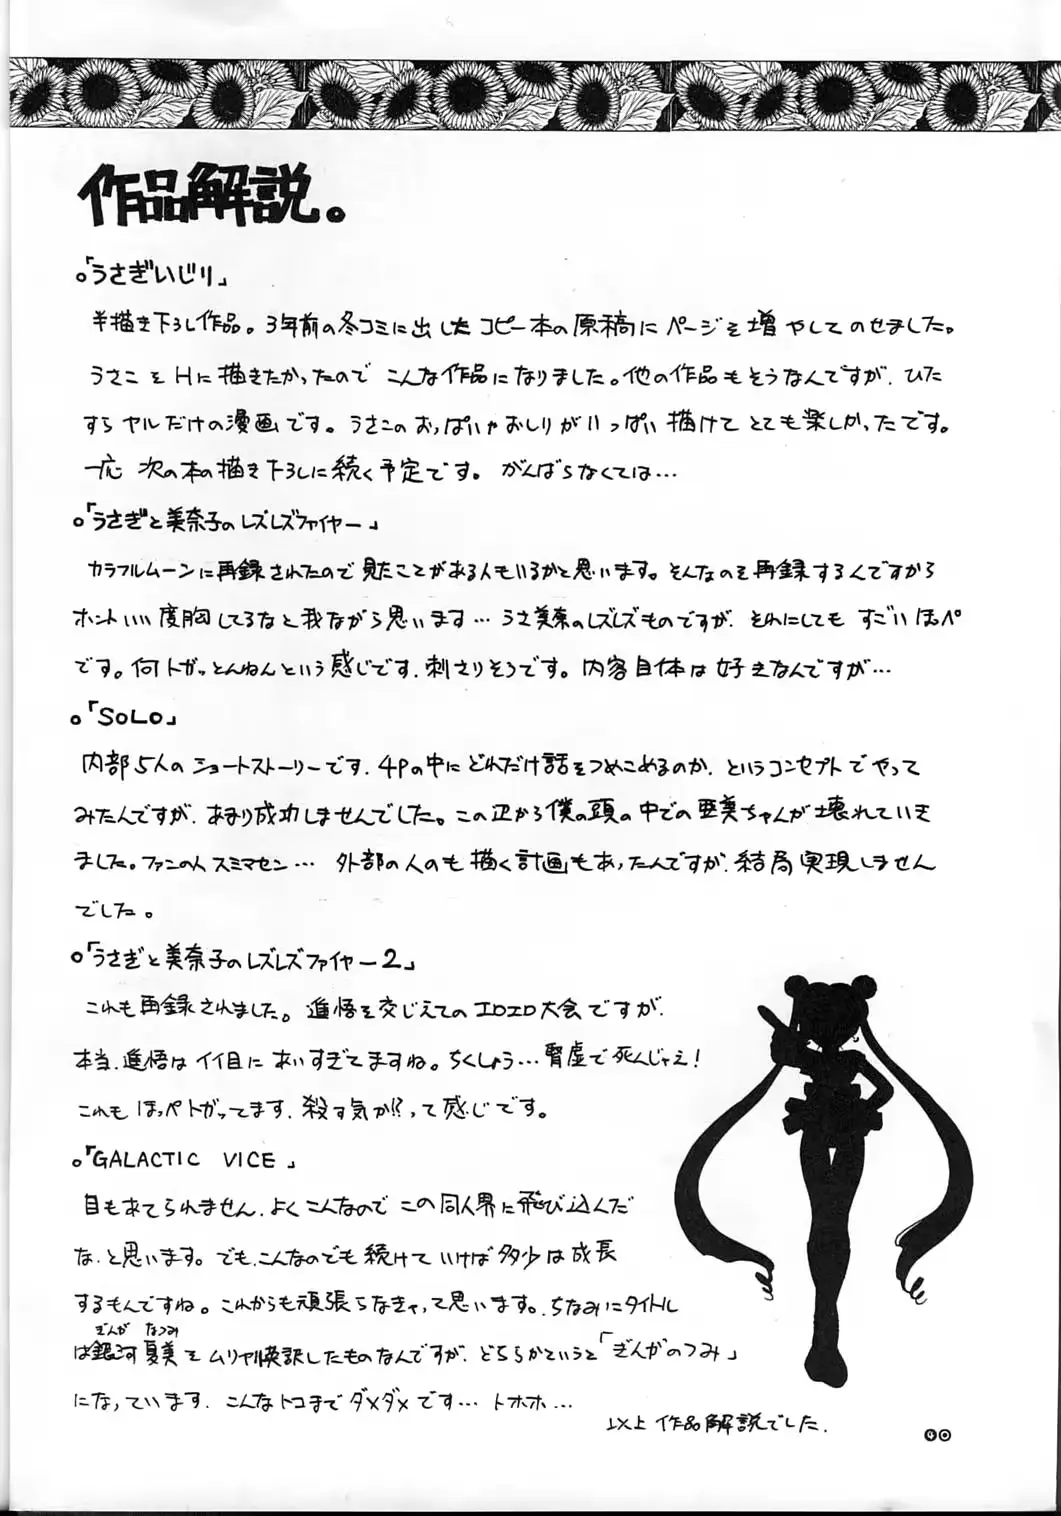 作品解説。
。「うさぎいじり」
半描き下ろし作品。3年前の冬コミに出したコピー本の原稿にページを増やしてのせました。
うさこをHに描きたかったのでこんな作品になりました。他の作品もそうなんですが、ひた
すらヤルだけの漫画です。うさこのおっぱいやおしりがいっぱい描けてとても楽しかったです。
一応 次の本の描き下ろしに続く予定です。がんばらなくては…
。「うさぎと美奈子のレズレズファイヤー」
カラフルムーンに再録されたので見たことがある人もいるかと思います。そんなのを再録するんですから
ホントいい度胸してるなと我ながら思います…うさ美奈のレズレズものですが、それにしてもすごいほっぺ
です。何トガっとんねんという感じです、刺さりそうです。内容自体は好きなんですが…
。「SOLO」
内部5人のショートストーリーです、4Pの中にどれだけ話をつめこめるのか、というコンセプトでやって
みたんですが、あまり成功しませんでした。この辺から僕の頭の中での亜美ちゃんが壊れていき
ました。ファンの人スミマセン… 外部の人のも描く計画もあったんですが、結局実現しません
でした。
。「うさぎと美奈子のレズレズファイヤー2」
これも再録されました。進悟を交じえてのエロエロ大会ですが、
本当、進悟はイイ目にあいすぎてますね。ちくしょう…腎虚で死んじゃえ!
これもほっぺトガってます、殺す気か!?って感じです。
。「GALACTIC VICE」
目もあてられません、よくこんなのでこの同人界に飛び込んだ
な、と思います。でも、こんなのでも続けていけば多少は成長
するもんですね。これからも頑張らなきゃって思います。ちなみにタイトル
は銀河夏美をムリヤル英訳したものなんですが、どちらかというと「ぎんがのつみ」
ぎんが なつみ
になっています、こんなトコまでダメダメです… トホホ…
以上 作品解説でした.
40